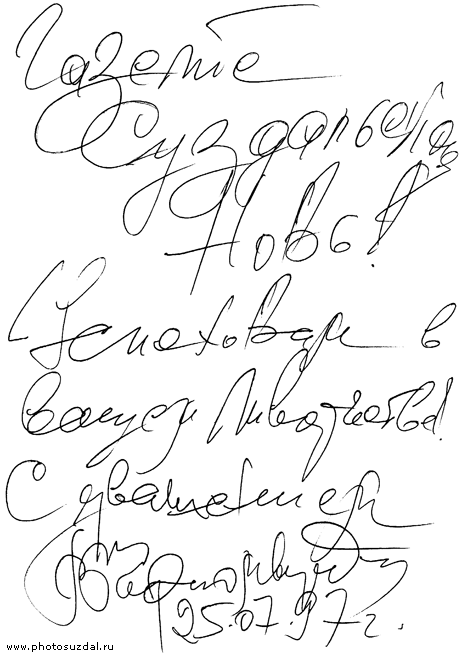 Газете
Суздальская
Новь!
Успехов Вам в
вашем творчестве!
С уважением
25.07.97 г.
www.photosuzdal.ru